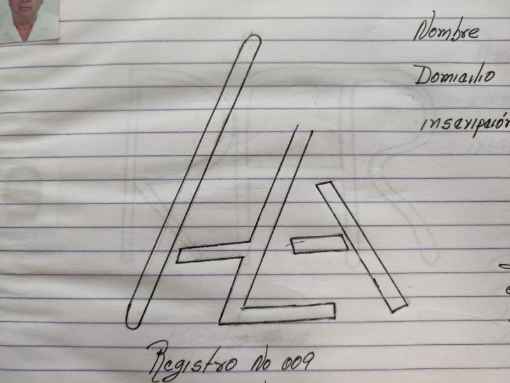 Nombre
Domicilio
inscripción
Registro No 009